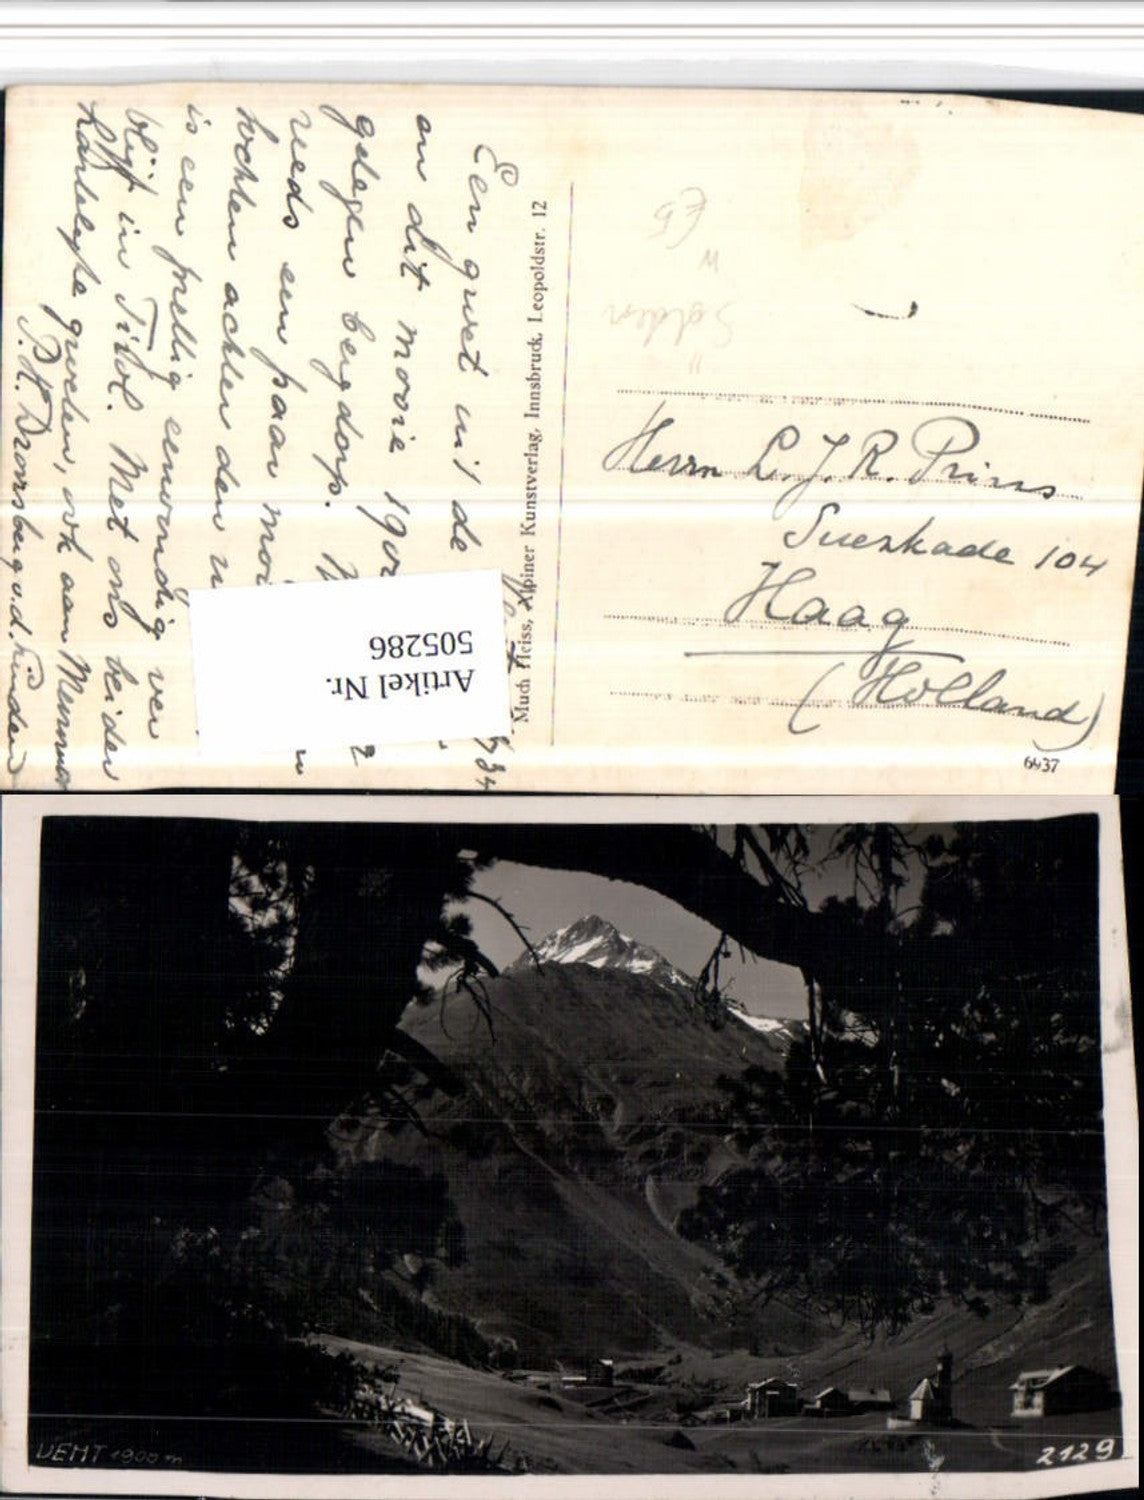 /34
Een groet uit de
om dit mooie 190
gelegen bergdorp.
reeds een paar
tochten achter den
is een prettig eenvoudig ver
blijf in Tirol. Met ons beiden
hartelijke groeten, ook aan
Much Heiss, Alpiner Kunstverlag, Innsbruck, Leopoldstr. 12
Artikel Nr.
505286
Sölden
Herrn L. J. R. Prins
Suezkade 104
Haag
(Holland)
6937
VENT 1900 m
2129